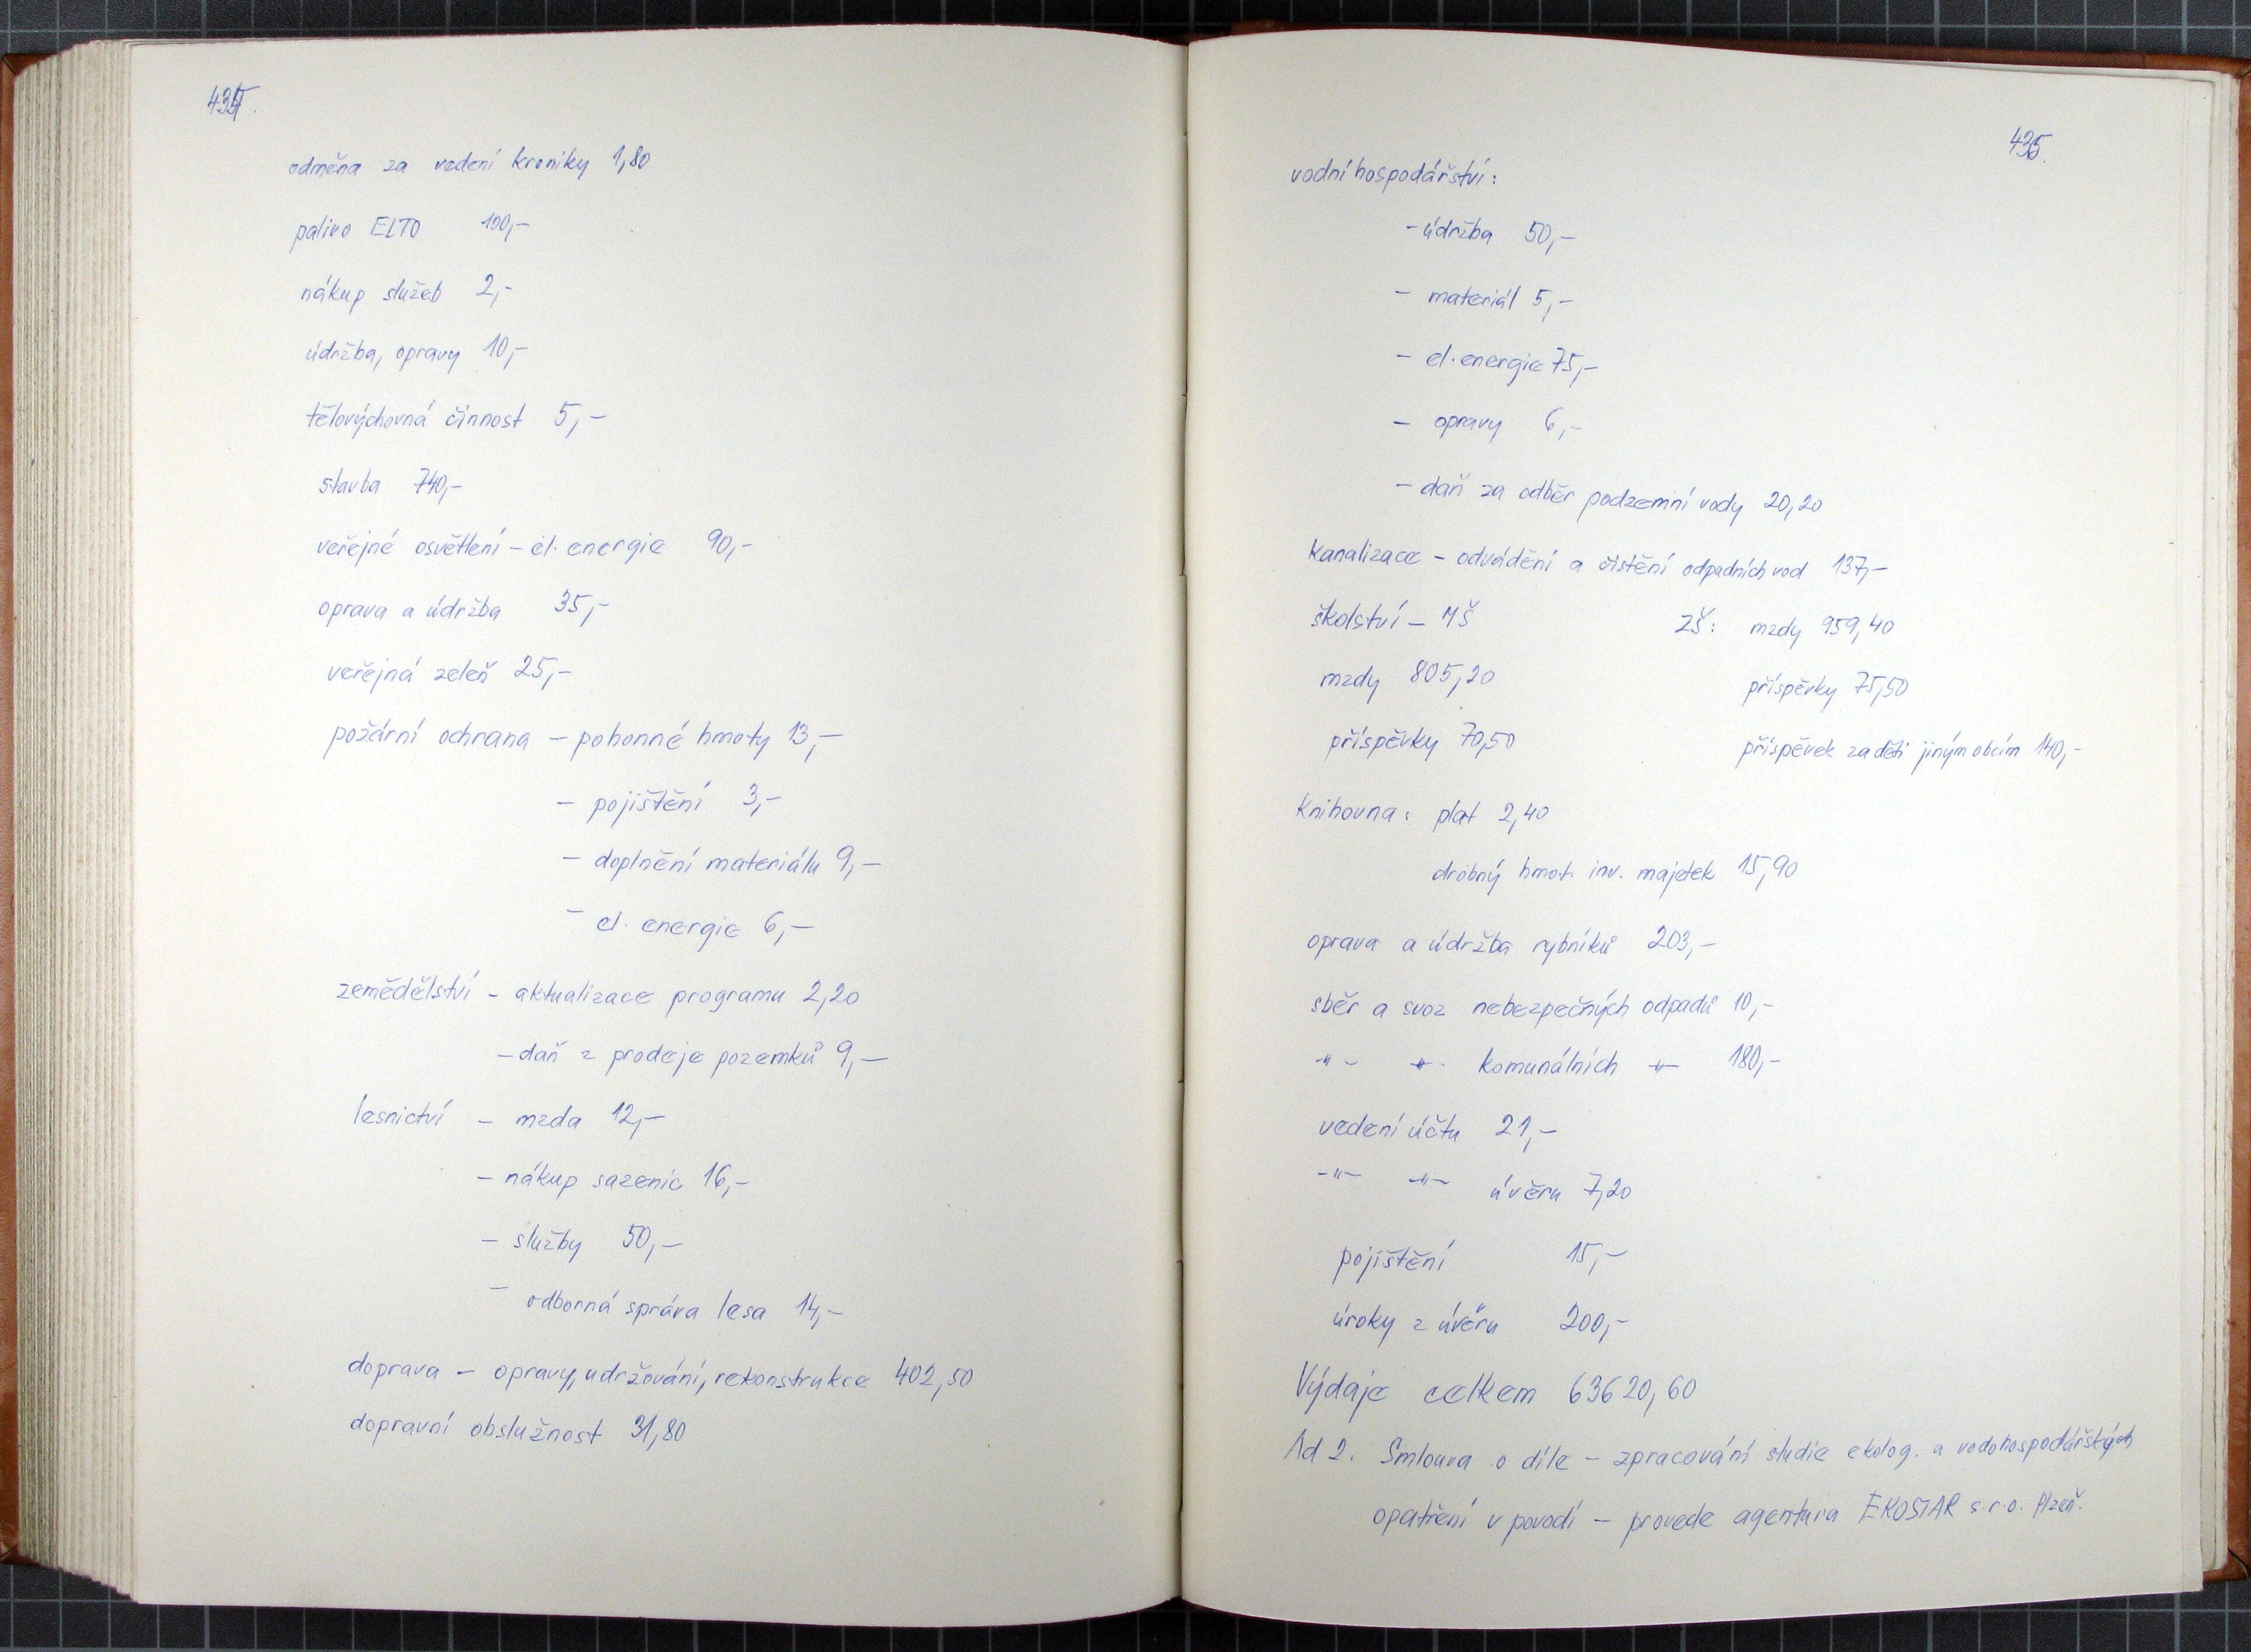 434.
odměna za vedení kroniky 1,80
palivo ELTO 100,-
nákup služeb 2,-
údržba, opravy 10,-
tělovýchovná činnost 5,-
stavba 740,-
veřejné osvětlení - el. energie 90,-
oprava a údržba 35,-
veřejná zeleň 25,-
požární ochrana - pohonné hmoty 13,-
- pojištění 3,-
- doplnění materiálu 9,-
- el. energie 6,-
zemědělství - aktualizace programu 2,20
- daň z prodeje pozemků 9,-
lesnictví - mzda 12,-
- nákup sazenic 16,-
- služby 50,-
- odborná správa lesa 14,-
doprava - opravy, udržování, rekonstrukce 402,50
dopravní obslužnost 31,80
435.
vodní hospodářství:
- údržba 50,-
- materiál 5,-
- el. energie 75,-
- opravy 6,-
- daň za odběr podzemní vody 20,20
Kanalizace - odvádění a čistění odpadních vod 137,-
školství - MŠ ZŠ: mzdy 959,40
mzdy 805,20 příspěvky 75,50
příspěvky 70,50 příspěvek za děti jiným obcím 140,-
Knihovna: plat 2,40
drobný hmot. inv. majetek 15,90
oprava a údržba rybníků 203,-
sběr a svoz nebezpečných odpadů 10,-
-"- -"- komunálních -"- 180,-
vedení účtu 21,-
-"- -"- úvěru 7,20
pojištění 15,-
úroky z úvěru 200,-
Výdaje celkem 63620,60
Ad 2. Smlouva o díle - zpracování studie ekolog. a vodohospodářských
opatření v povodí - provede agentura EKOSTAR s.r.o. Plzeň.